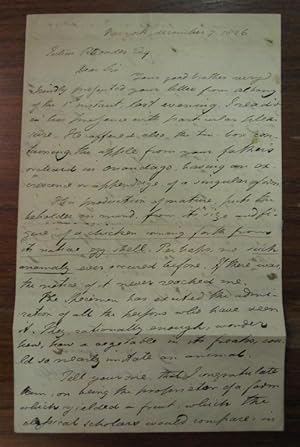 New york, december 7, 1826
Esq
Dear Sir
Your good brother very
kindly presented your letter from albany
of the 1st instant, last evening. I read it
in his presence with particular pleasure
ure. He offered also the tin box con
taining the apple from your fathers
orchard in onondago, having an ex
crescence or appendage of a singular form.
This production of nature, puts the
beholder in mind, from its size and fi
gure of a chicken coming forth from
its native egg shell. Perhaps no such
anomaly ever occured before. If there was
the notice of it never reached me.
The specimen has excited the admi
ration of all the persons who have seen
it. They rationally enough, wonder
how, how a vegetable in its freaks, cou
ld so nearly imitate an animal.
Tell your me, that I congratulate
him, on being the proprietor of a farm
which yielded a fruit, which the
classical scholars would compare, in